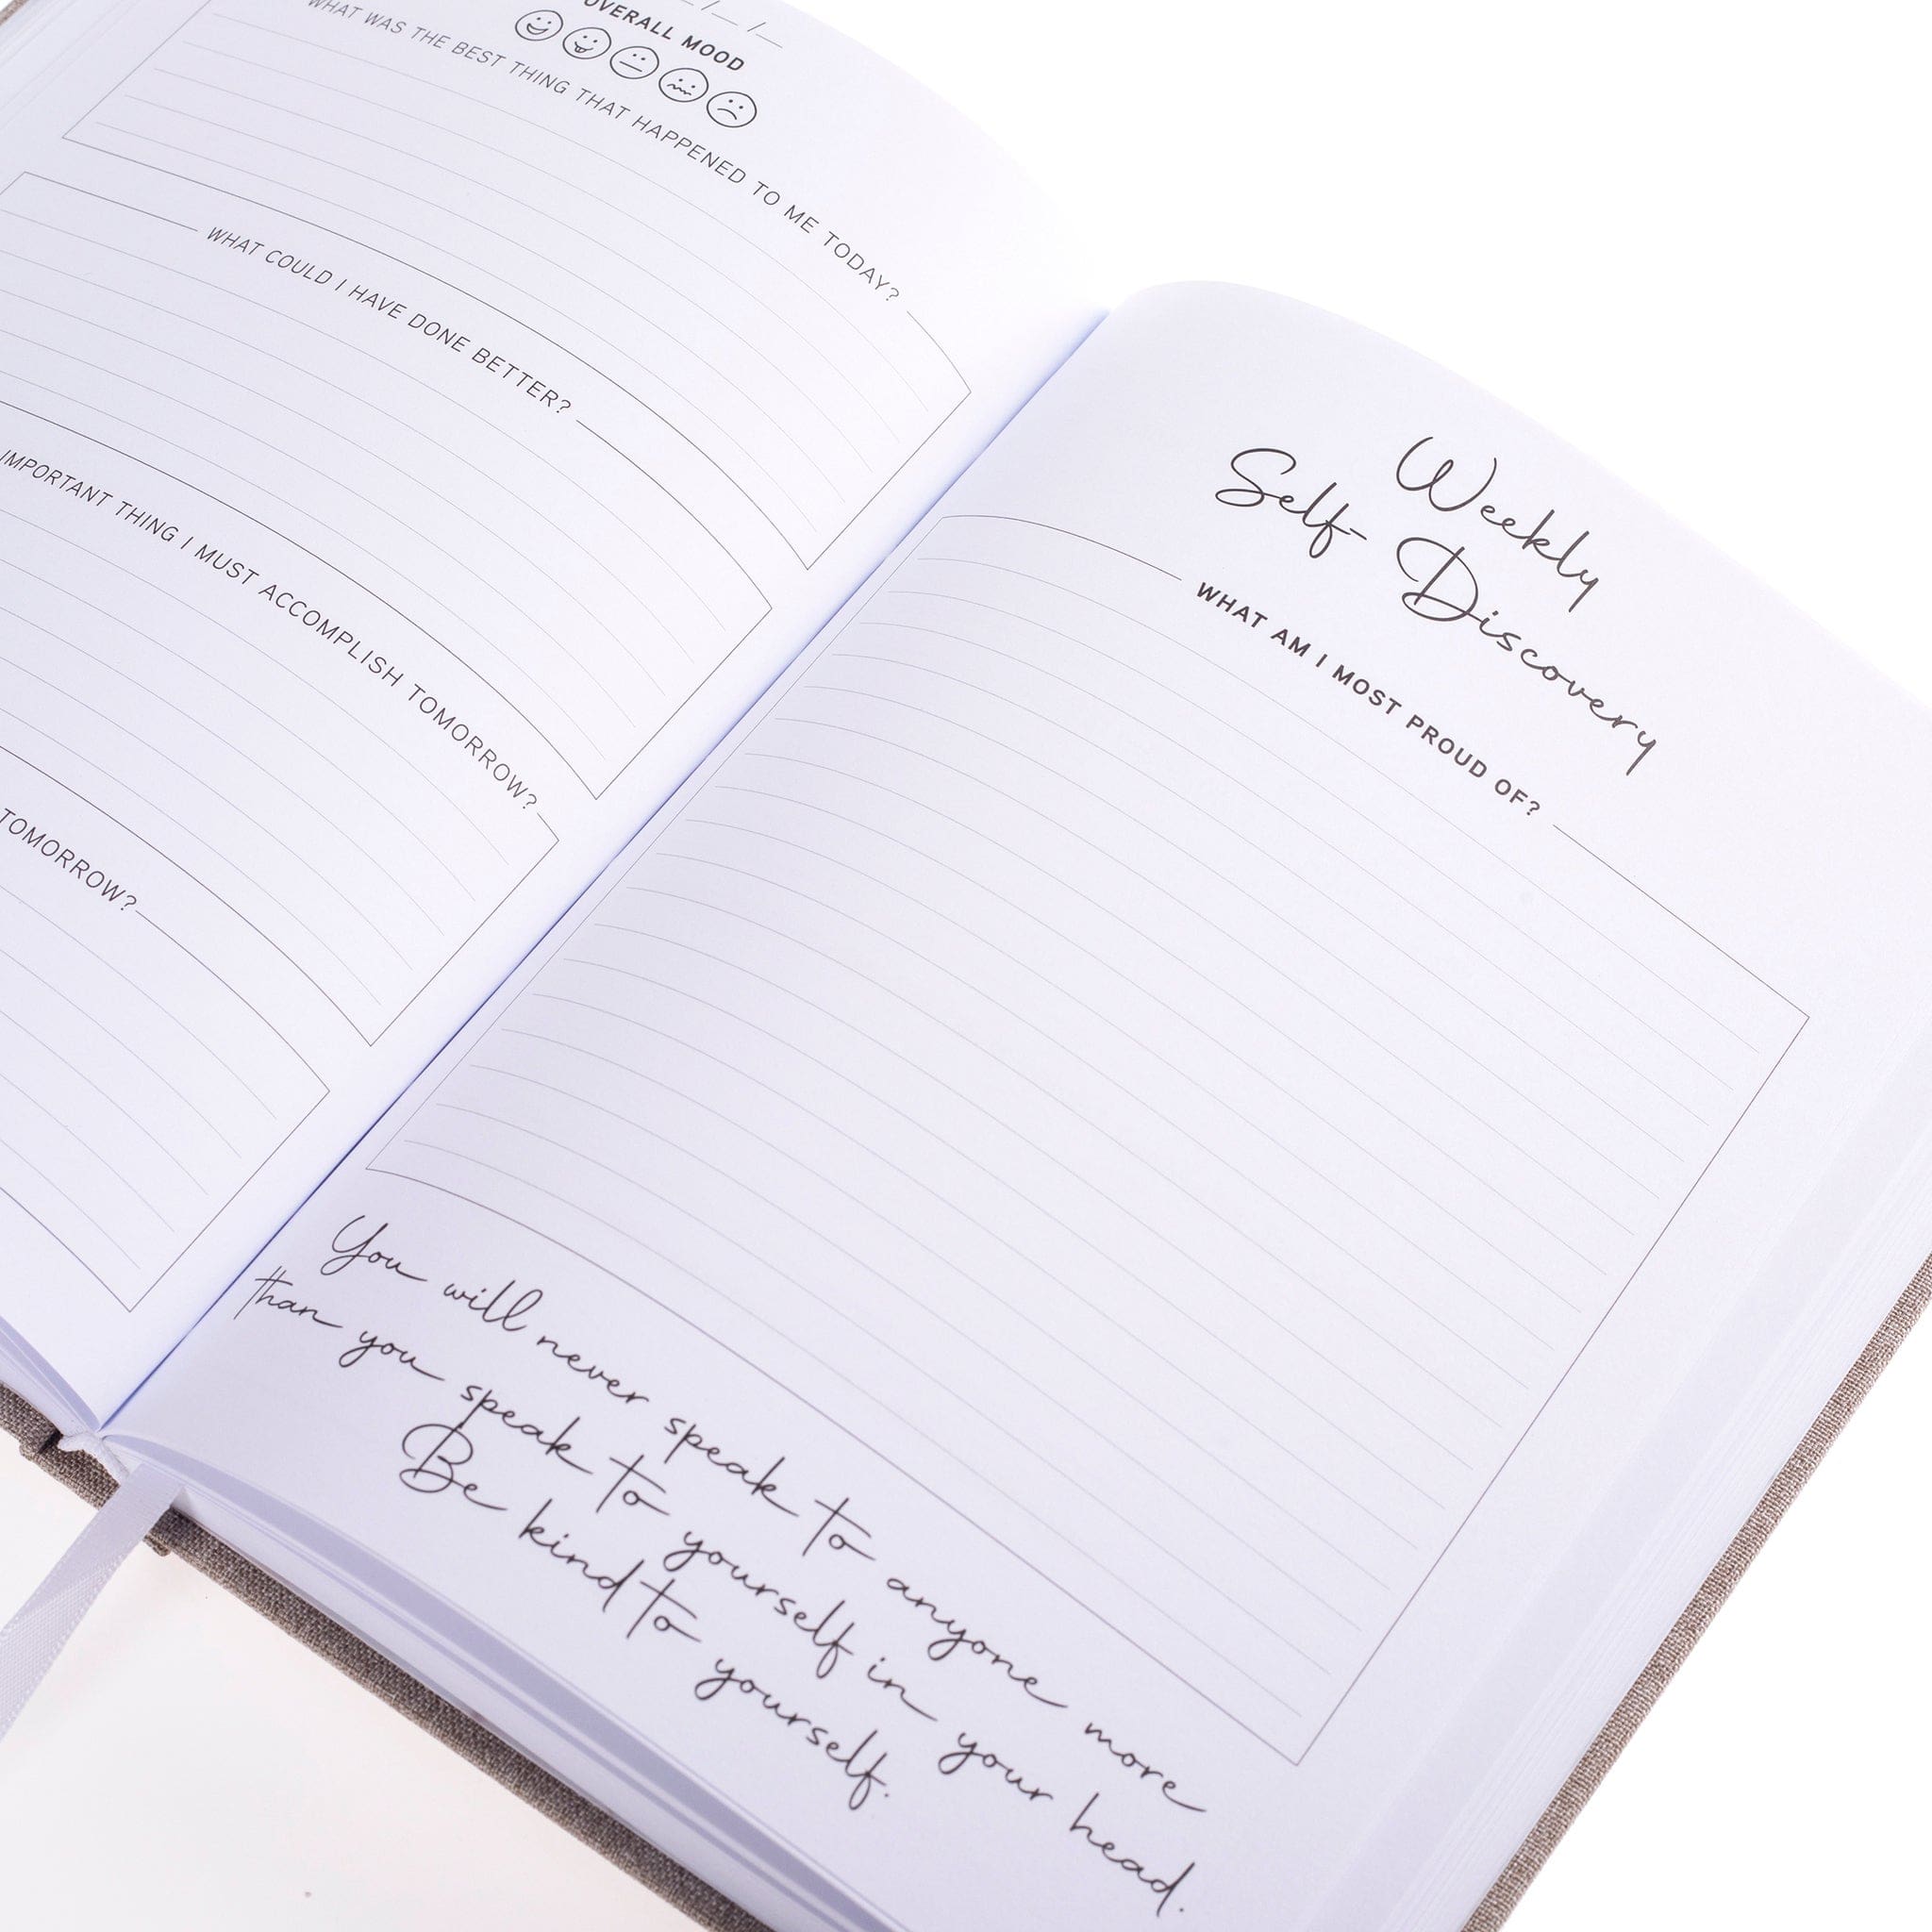 __/__/__
OVERALL MOOD
WHAT WAS THE BEST THING THAT HAPPENED TO ME TODAY?
WHAT COULD I HAVE DONE BETTER?
IMPORTANT THING I MUST ACCOMPLISH TOMORROW?
TOMORROW?
Weekly
Self- Discovery
WHAT AM I MOST PROUD OF?
You will never speak to anyone more
than you speak to yourself in your head.
Be kind to yourself.